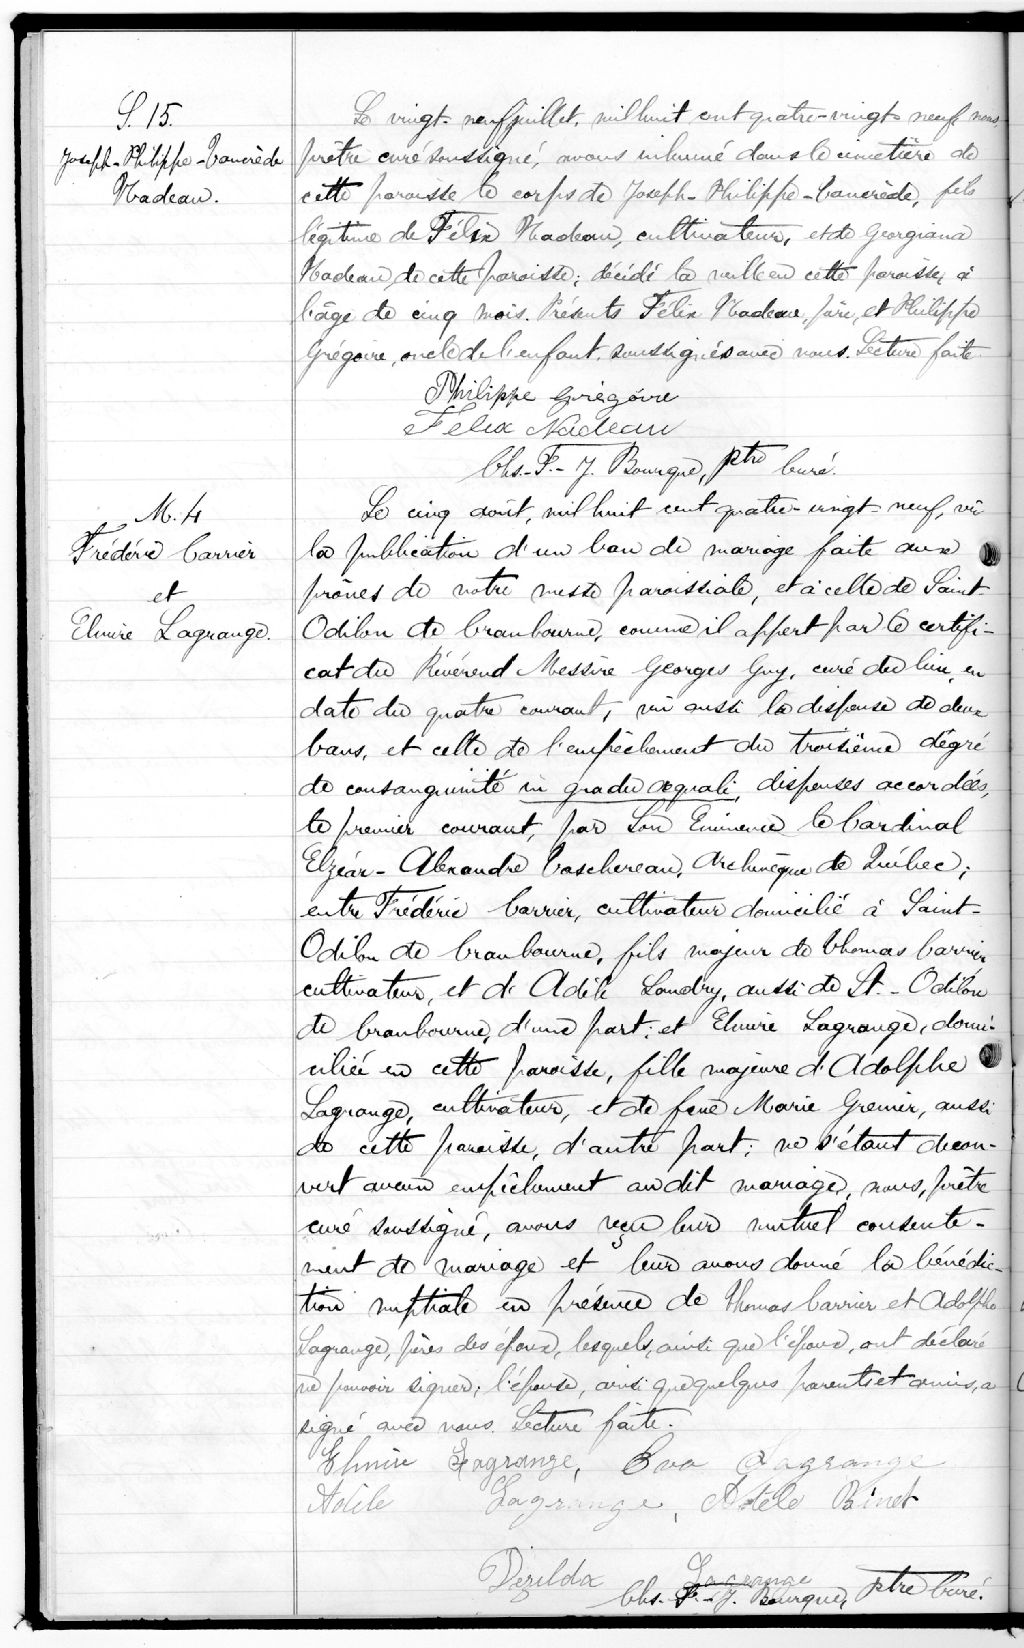 S. 15.
Joseph-Philippe-Tancrède
Nadeau.
Le vingt-neuf juillet, mil huit cent quatre-vingt-neuf nous,
prêtre curé soussigné, avons inhumé dans le cimetière de
cette paroisse le corps de Joseph-Philippe-Tancrède, fils
légitime de Félix Nadeau, cultivateur, et de Georgiana
Nadeau de cette paroisse; décédé la veille en cette paroisse, à
l'âge de cinq mois. Présents Félix Nadeau, père, et Philippe
Grégoire, oncle de l'enfant, soussignés avec nous. Lecture faite.
Philippe Grégoire
Félix Nadeau
Chs.-F.-J. Bourque, ptre Curé.
M. 4
Frédéric Carrier
et
Elmire Lagrange.
Le cinq août, mil huit cent quatre-vingt-neuf, vu
la publication d'un ban de mariage faite aux
prônes de notre messe paroissiale, et à celle de Saint-
Odilon de Cranbourne, comme il appert par le certifi-
cat du Révérend Messire Georges Guy, curé du lieu, en
date du quatre courant, vu aussi la dispense de deux
bans, et celle de l'empêchement du troisième dégré
de consanguinité in gradu æquali, dispenses accordées,
le premier courant, par Son Eminence le Cardinal
Elzéar-Alexandre Taschereau, Archevêque de Québec;
entre Frédéric Carrier, cultivateur domicilié à Saint-
Odilon de Cranbourne, fils majeur de Thomas Carrier
cultivateur, et d'Adèle Landry, aussi de St.-Odilon
de Cranbourne, d'une part; et Elmire Lagrange, domi-
ciliée en cette paroisse, fille majeure d'Adolphe
Lagrange, cultivateur, et de feue Marie Grenier, aussi
de cette paroisse, d'autre part; ne s'étant décou-
vert aucun empêchement au dit mariage, nous, prêtre
curé soussigné, avons reçu leur mutuel consente-
ment de mariage et leur avons donné la bénédic-
tion nuptiale en présence de Thomas Carrier et Adolphe
Lagrange, pères des époux, lesquels, ainsi que l'époux, ont déclaré
ne pouvoir signer; l'épouse, ainsi que quelques parents et amis, a
signé avec nous. Lecture faite.
Elmire Lagrange, Eva Lagrange
Adèle Lagrange, Adèle Binet
Dezilda Lagrange
Chs. F.-J. Bourque, ptre Curé.